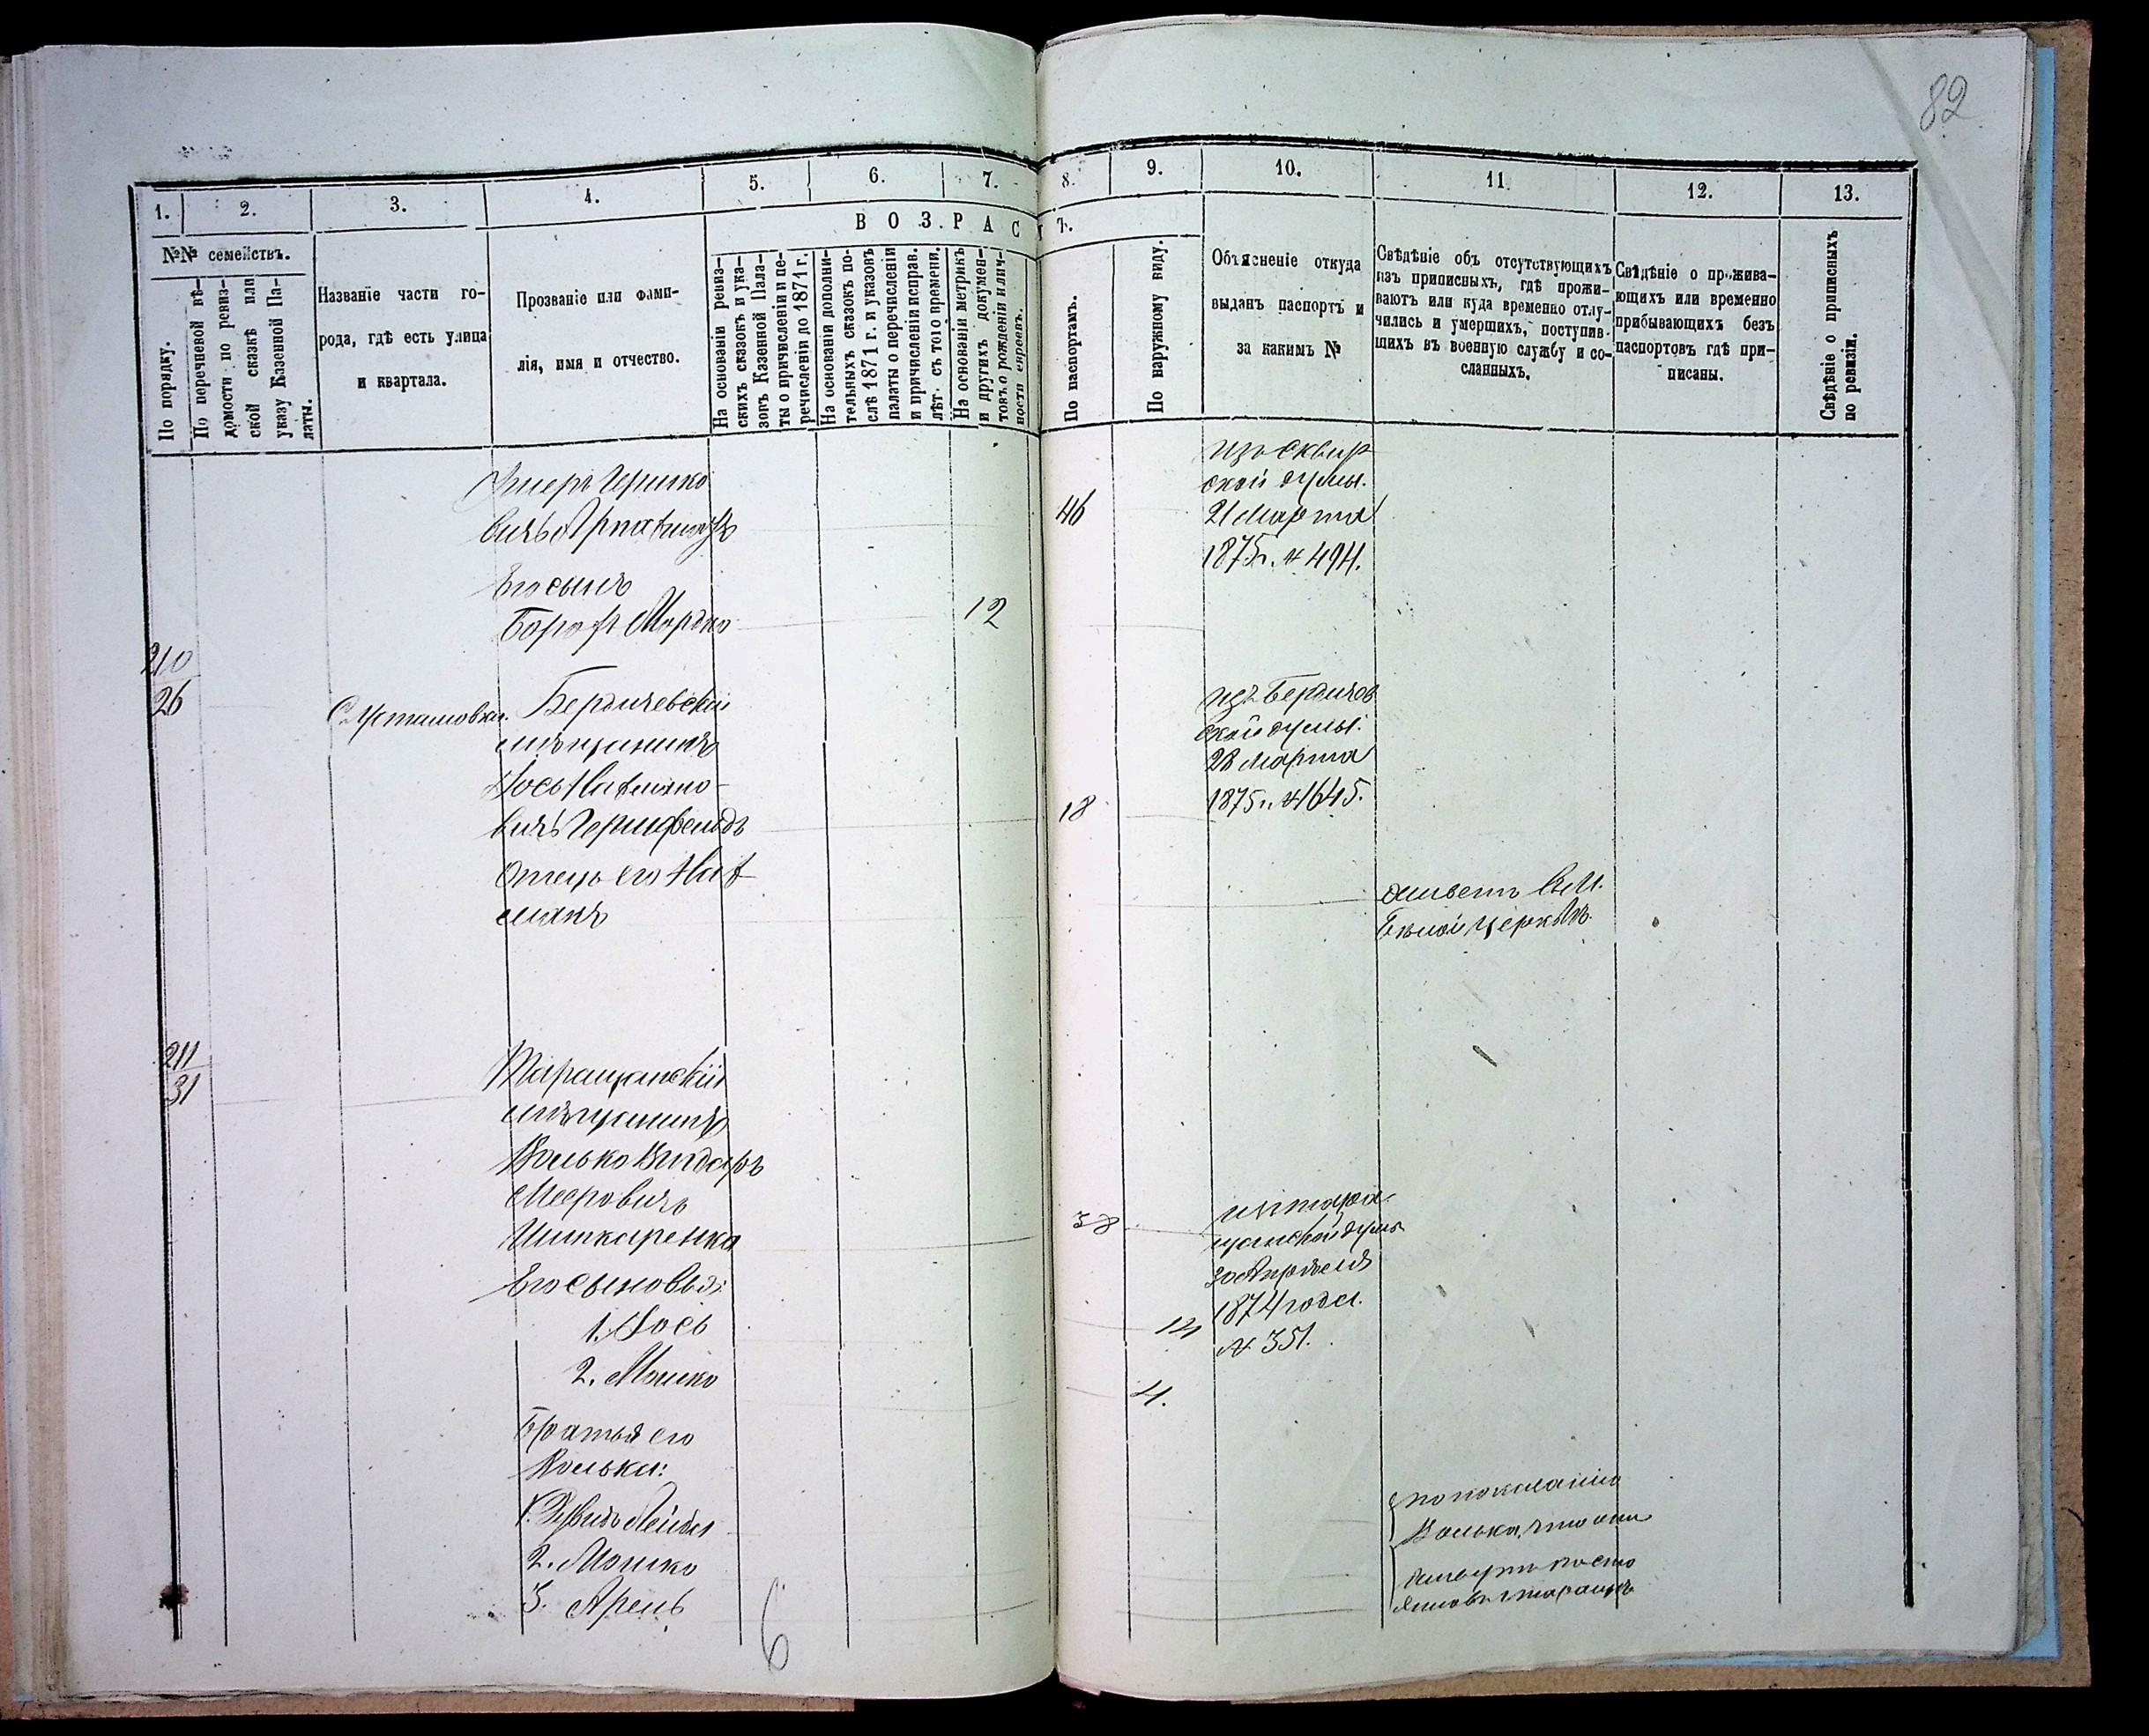 82
1. 2. 3. 4. 5. 6. 7. 8. 9. 10. 11. 12. 13.
№№ семействъ.
В О З Р А С Т Ъ.
По порядку.
По перечневой вѣ-
домости по ревиз-
ской сказкѣ или
указу Казенной Па-
латы.
Названіе части го-
рода, гдѣ есть улица
и квартала.
Прозваніе или фами-
лія, имя и отчество.
На основаніи ревиз-
скихъ сказокъ и ука-
зовъ Казенной Пала-
ты о причисленіи и пе-
речисленіи до 1871 г.
На основаніи дополни-
тельныхъ сказокъ по-
слѣ 1871 г. и указовъ
палаты о перечисленіи
и причисленіи исправ.
лѣтъ съ того времени.
На основаніи метрикъ
и другихъ докумен-
товъ о рожденіи и лич-
ности евреевъ.
По паспортамъ.
По наружному виду.
Объясненіе откуда
выданъ паспортъ и
за какимъ №
Свѣдѣніе объ отсутствующихъ
изъ приписныхъ, гдѣ прожи-
ваютъ или куда временно отлу-
чились и умершихъ, поступив-
шихъ въ военную службу и со-
сланныхъ.
Свѣдѣніе о прожива-
ющихъ или временно
прибывающихъ безъ
паспортовъ гдѣ при-
писаны.
Свѣдѣніе о приписныхъ
по ревизіи.
Гершко
вичъ
46
изъ Сквир
ской думы.
21 Марта
1875 г. № 494.
Его сынъ
Борох Мордко
12
210
26
Бердичевскій
мѣщанинъ
Іось Нахмано-
вичъ Гершфельдъ
18
изъ Бердичев
ской думы.
28 Марта
1875 г. № 1645.
Отецъ его Нах
манъ
живетъ въ М.
Бѣлой Церквѣ.
211
31
Таращанскій
мѣщанинъ
Волько
Мееровичъ
Шинкаренко
38
изъ Тара
щанской думы
30 Апрѣля
1874 года.
№ 351.
Его сыновья:
1. Іось
14
2. Мошко
4.
Братья его
Волька:
1. Дувидъ Лейба
2. Мошко
3. Арень
по показанію
Волька, что они
живутъ посто
янно въ г. Таращѣ
6